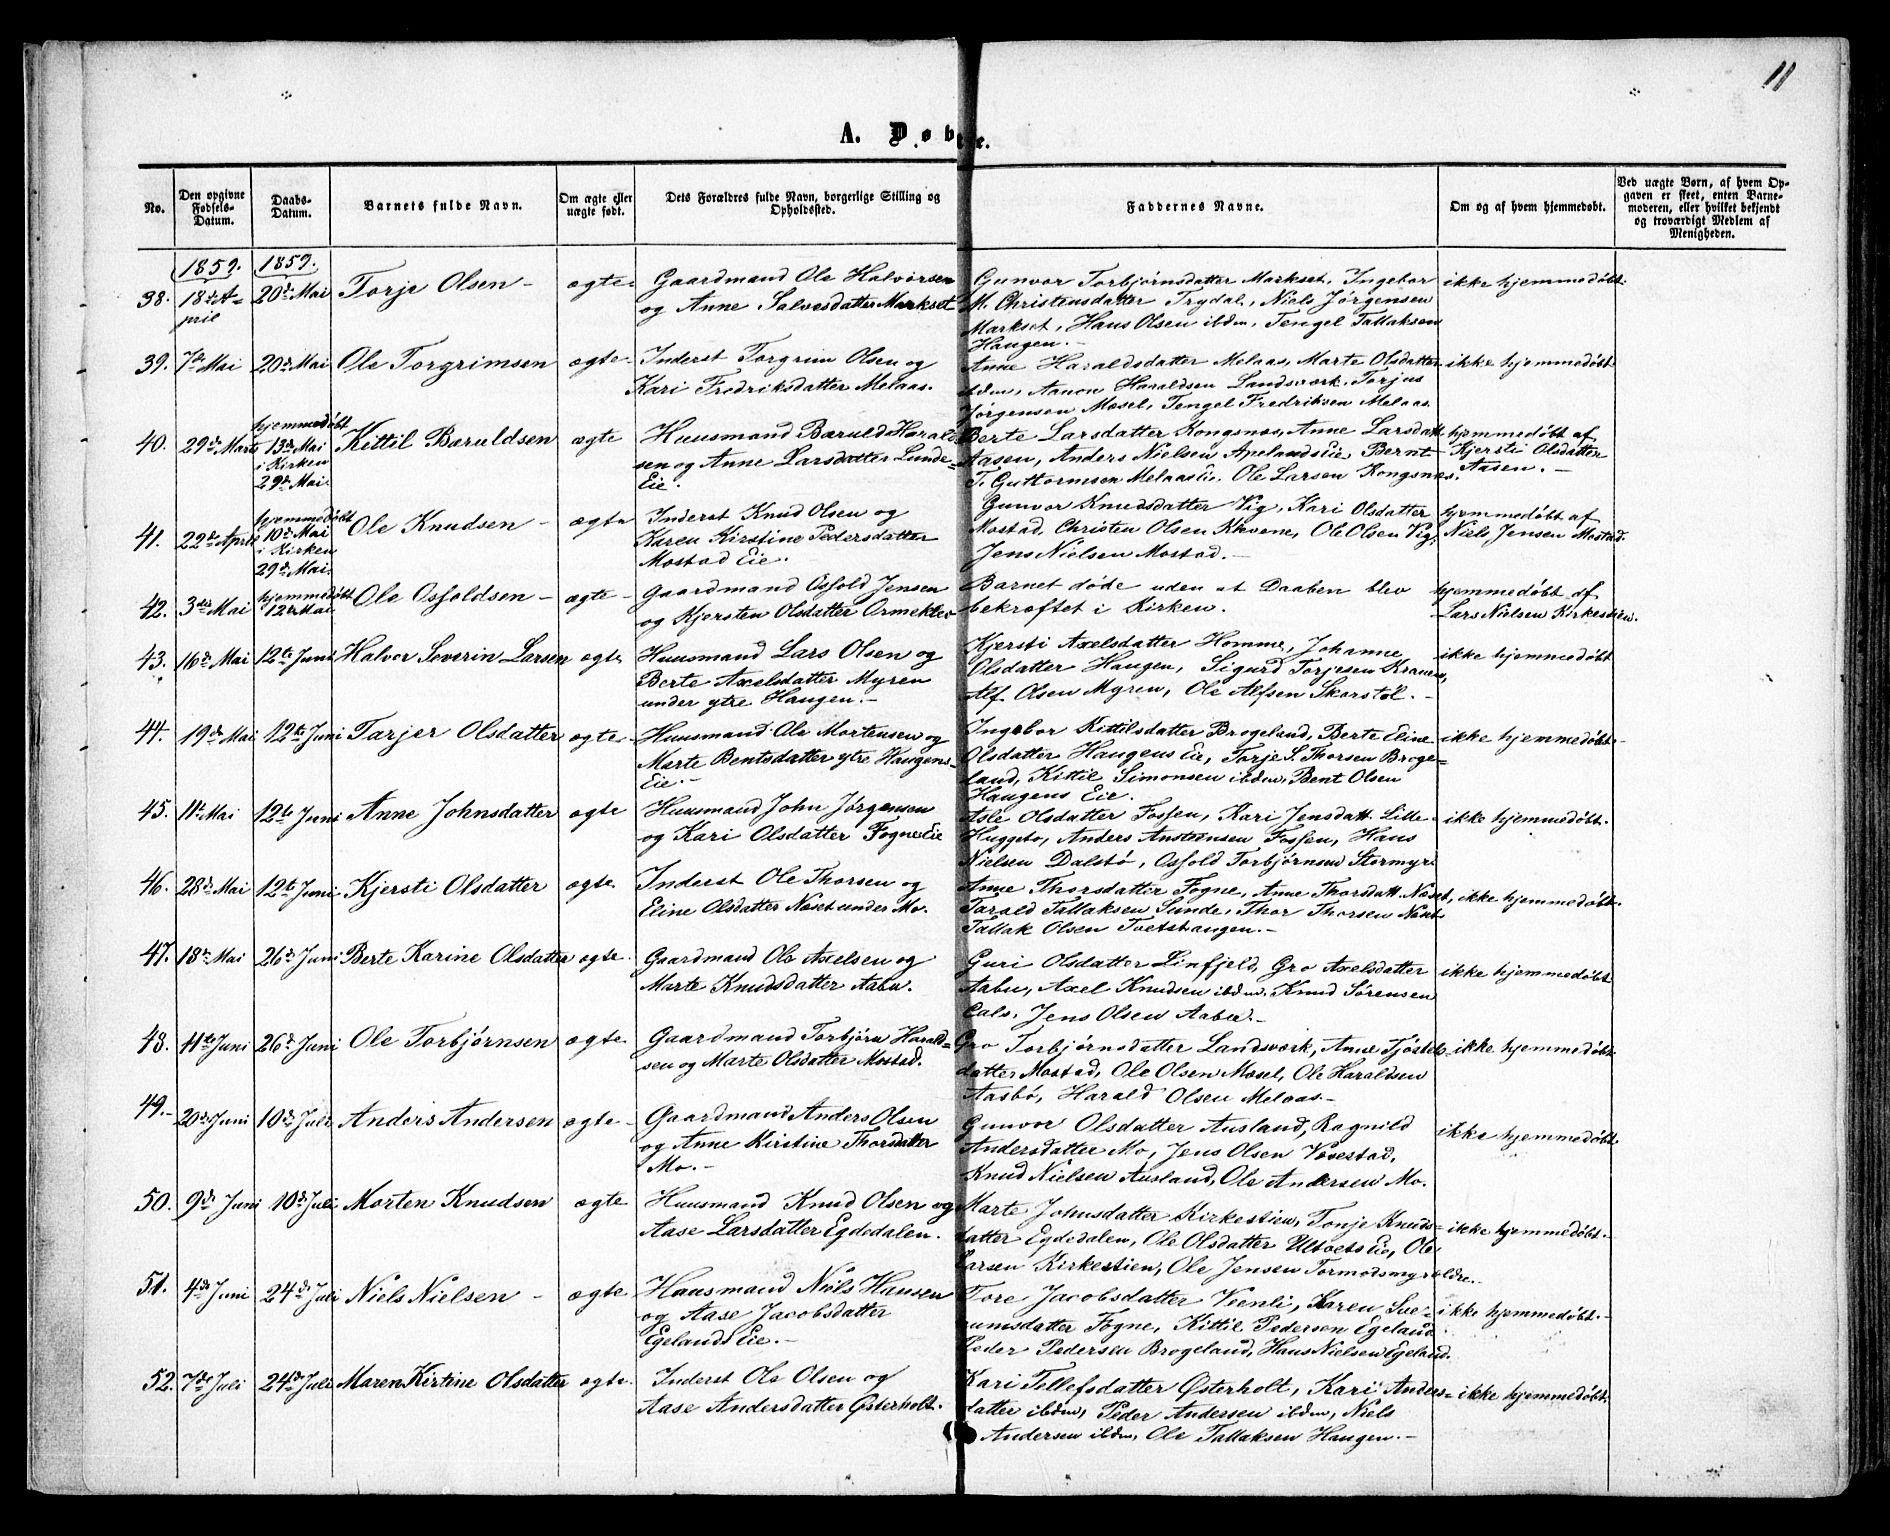 11
A. Døbte.
No.
Den opgivne Fødsels-Datum.
Daabs-Datum.
Barnets fulde Navn.
Om ægte eller uægte født.
Dets Forældres fulde Navn, borgerlige Stilling og Opholdssted.
Faddernes Navne.
Om og af hvem hjemmedøbt.
Ved uægte Børn, af hvem Opgaven er skeet, enten Barnemoderen, eller hvilket bekjendt og troværdigt Medlem af Menigheden.
1859. 1859.
38. 18de April 20de Mai Torje Olsen - ægte
Gaardmand Ole Halvorsen
og Anne Salvesdatter Markset
Gunvor Torbjørnsdatter Markset, Ingebor
M. Christensdatter Trydal, Niels Jørgensen
Markset, Hans Olsen ibdm, Tengel Tallaksen
Haugen.-
ikke hjemmedøbt.
39. 7de Mai 20de Mai Ole Torgrimsen ægte
Inderst Torgrim Olsen og
Kari Fredriksdatter Melaas.
Anne Haraldsdatter Melaas, Marte Olsdatter
ibdm, Aanon Haraldsen Landsværk, Torjus
Jørgensen Mosel, Tengel Fredriksen Melaas
ikke hjemmedøbt
40. 29de Marts hjemmedøbt
13de Mai
i Kirken
29de Mai.
Kittil Baruldsen ægte
Huusmand Baruld Harald
sen og Anne Larsdatter Lunde-
Eie.
Berte Larsdatter Kongsnæs, Anne Larsdatt
Aasen, Anders Nielsen Apelands Eie, Bernt
T. Guttormsen Melaas Eie, Ole Larsen Kongsnæs.
hjemmedøbt af
Kjersti Olsdatter
Aasen.-
41. 22de April hjemmedøbt
10de Mai
i Kirken
29de Mai.
Ole Knudsen - ægte
Inderst Knud Olsen og
Karen Kirstine Pedersdatter
Mostad Eie.
Gunvor Knudsdatter Vig, Kari Olsdatter
Mostad, Christen Olsen Khvene, Ole Olsen Vig,
Jens Nielsen Mostad.-
hjemmedøbt af
Niels Jensen Mostad.
42. 3die Mai hjemmedøbt
12te Mai
Ole Osfoldsen - ægte -
Gaardmand Osfold Jensen
og Kjersten Olsdatter Ormeklev
Barnet døde uden at Daaben blev
bekræftet i Kirken.
hjemmedøbt af
Lars Nielsen Kirkestien.
43. 16de Mai 12te Juni Halvor Severin Larsen ægte
Huusmand Lars Olsen og
Berte Axelsdatter Myren
under ytre Haugen.-
Kjersti Axelsdatter Homme, Johanne
Olsdatter Haugen, Sigurd Torjesen
Alf Olsen Myren, Ole Alfsen Skorstøl.-
ikke hjemmedøbt
44. 19de Mai 12te Juni Tarjer Olsdatter ægte
Huusmand Ole Mortensen og
Marte Bentsdatter ytre Haugens-
Eie.-
Ingebor Kittilsdatter Brogeland, Berte Eline
Olsdatter Haugens Eie, Torje S. Thorsen Broge-
land, Kittil Simonsen ibdm, Bent Olsen
Haugens Eie.
ikke hjemmedøbt.
45. 11te Mai 12te Juni Anne Johnsdatter ægte
Huusmand John Jørgensen
og Kari Olsdatter Fogne Eie
Asle Olsdatter Fossen, Kari Jensdatt. Lille-
Huggeto, Anders Anstensen Fossen, Hans
Nielsen Dalstø, Osfold Torbjørnsen Stormyr
ikke hjemmedøbt.
46. 28de Mai 12te Juni Kjersti Olsdatter ægte
Inderst Ole Thorsen og
Eline Olsdatter Næset under Mo.
Anne Thorsdatter Fogne, Anne Thorsdatt. Næset,
Tarald Tallaksen Sunde, Thor Thorsen Næset
Tallak Olsen Tvetshaugen.-
ikke hjemmedøbt.
47. 18de Mai 26de Juni Berte Karine Olsdatter ægte.
Gaardmand Ole Axelsen og
Marte Knudsdatter Aabu.
Guri Olsdatter Linfjeld, Gro Axelsdatter
Aabu, Axel Knudsen ibdm, Knud Sørensen
Cals, Jens Olsen Aabu.-
ikke hjemmedøbt
48. 11te Juni 26de Juni Ole Torbjørnsen ægte
Gaardmand Torbjørn Harald-
sen og Marte Olsdatter Mostad.
Gro Torbjørnsdatter Landsværk, Anne Tjøstels-
datter Mostad, Ole Olsen Mosel, Ole Haraldsen
Aasbø, Harald Olsen Melaas.-
ikke hjemmedøbt
49.- 20de Juni 10de Juli Anders Andersen ægte
Gaardmand Anders Olsen
og Anne Kirstine Thorsdatter
Mo.-
Gunvor Olsdatter Ausland, Ragnild
Andersdatter Mo, Jens Olsen Væsestad,
Knud Nielsen Ausland, Ole Andersen Mo.
ikke hjemmedøbt.
50. 9de Juni 10de Juli Morten Knudsen ægte
Huusmand Knud Olsen og
Aase Larsdatter Egdedalen.
Marte Johnsdatter Kirkestien, Tonje Knuds-
datter Egdedalen, Ole Olsdatter Ultvets Eie, Ole
Larsen Kirkestien, Ole Jensen Tormodsmyr ældre.
ikke hjemmedøbt.
51. 4de Juni 24de Juli Niels Nielsen - ægte
Huusmand Niels Hansen
og Aase Jacobsdatter
Egelands Eie.-
Tore Jacobsdatter Veenli, Karen Sve-
numsdatter Fogne, Kittil Pedersen Egeland
Peder Pedersen Brogeland, Hans Nielsen Egeland.
ikke hjemmedøbt.-
52. 7de Juli 24de Juli Maren Kirtine Olsdatter ægte.
Inderst Ole Olsen og
Aase Andersdatter Østerholt.
Kari Tellefsdatter Østerholt, Kari Anders-
datter ibdm, Peder Andersen ibdm, Niels
Andersen ibdm, Ole Tallaksen Haugen.-
ikke hjemmedøbt.